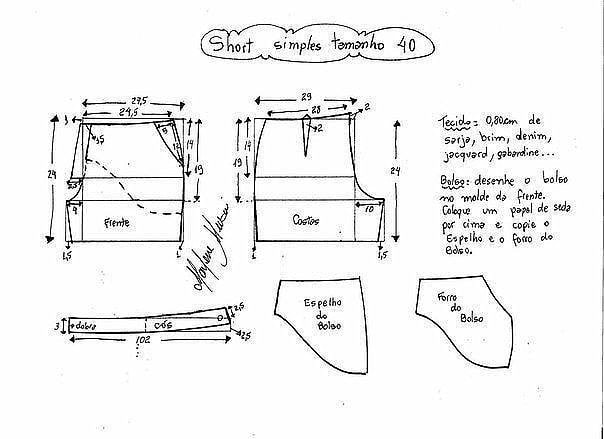 Short simples tamanho 40
27,5
24,5
3
3,5
8
12
14
19
24
3,3
4
Frente
1,5
1
29
28
2
2
14
19
24
10
Costas
1
1,5
Tecido: 0,80cm de
sarja, brim, denim,
jacquard, gabardine...
Bolso: desenhe o bolso
no molde da frente.
Coloque um papel de seda
por cima e copie o
Espelho e o forro do
Bolso.
Marlene Mukai
3
dobra
cós
2,5
2,5
102
Espelho
do
Bolso
Forro
do
Bolso